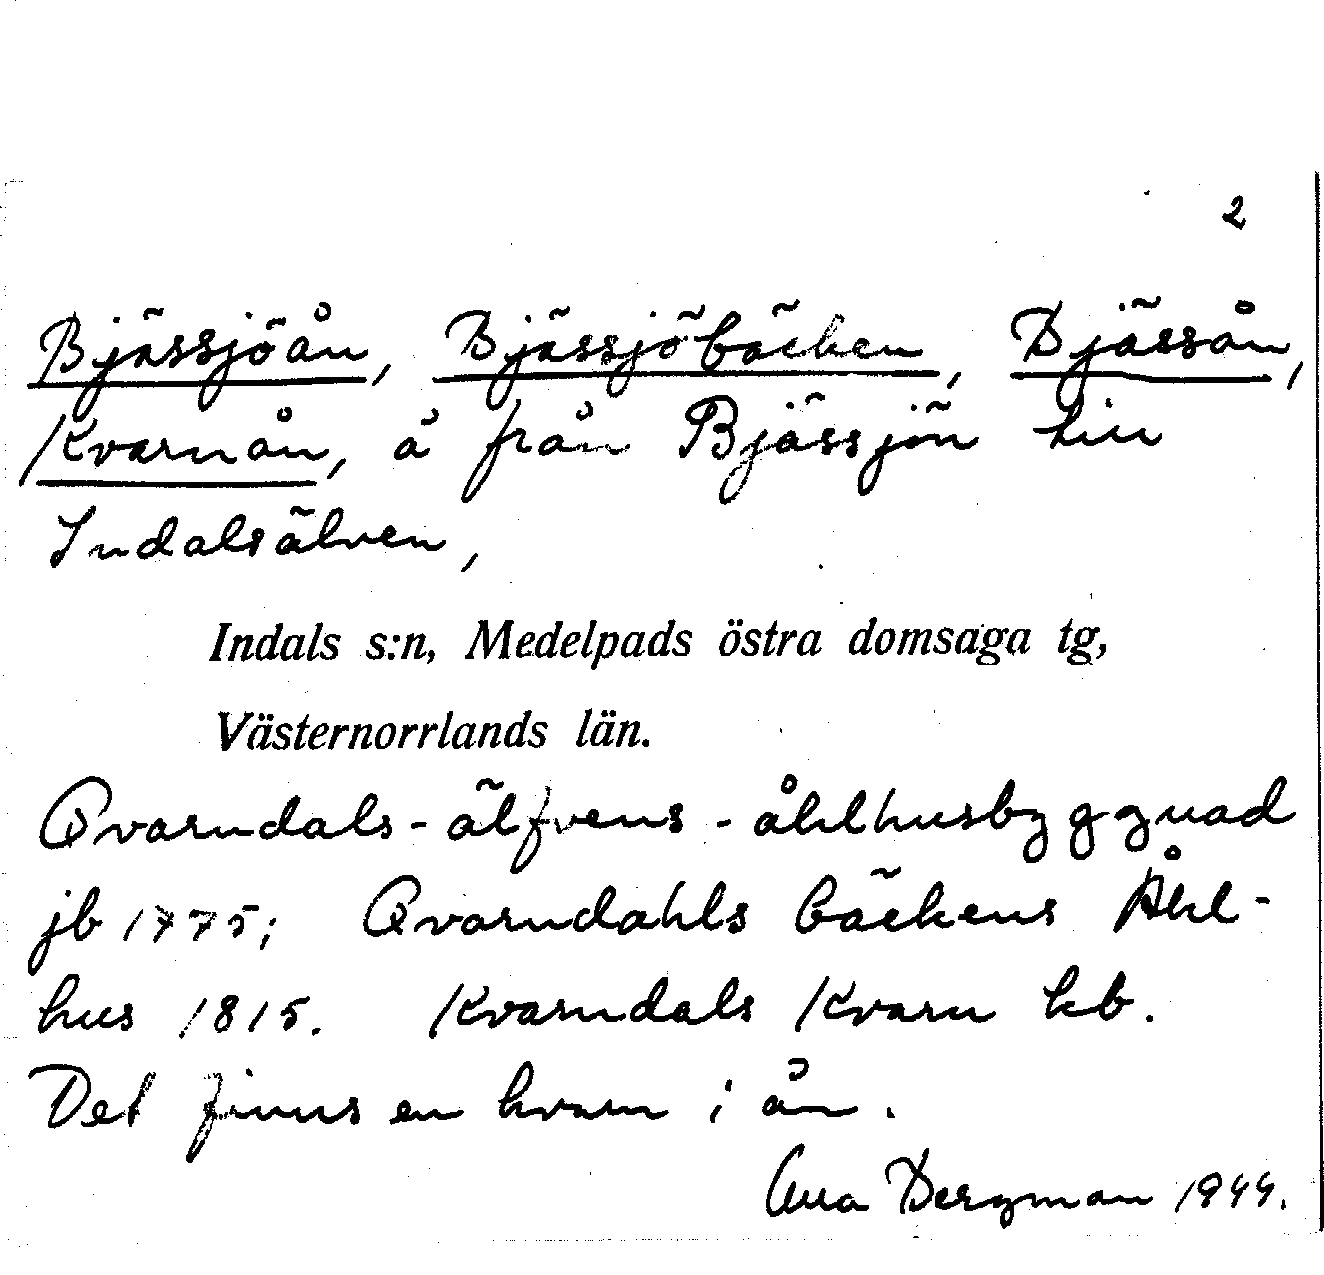 2
Bjässjöån, Bjässjöbäcken, Bjässån,
Kvarnån, å från Bjässjön till
Indalsälven,
Indals s:n, Medelpads östra domsaga tg,
Västernorrlands län.
Qvarndals-älfvens-åhlhusbyggnad
jb 1775; Qvarndahls bäckens Åhl-
hus 1815. Kvarndals Kvarn kb.
Det finns en kvarn i ån.
Bergman 1944.